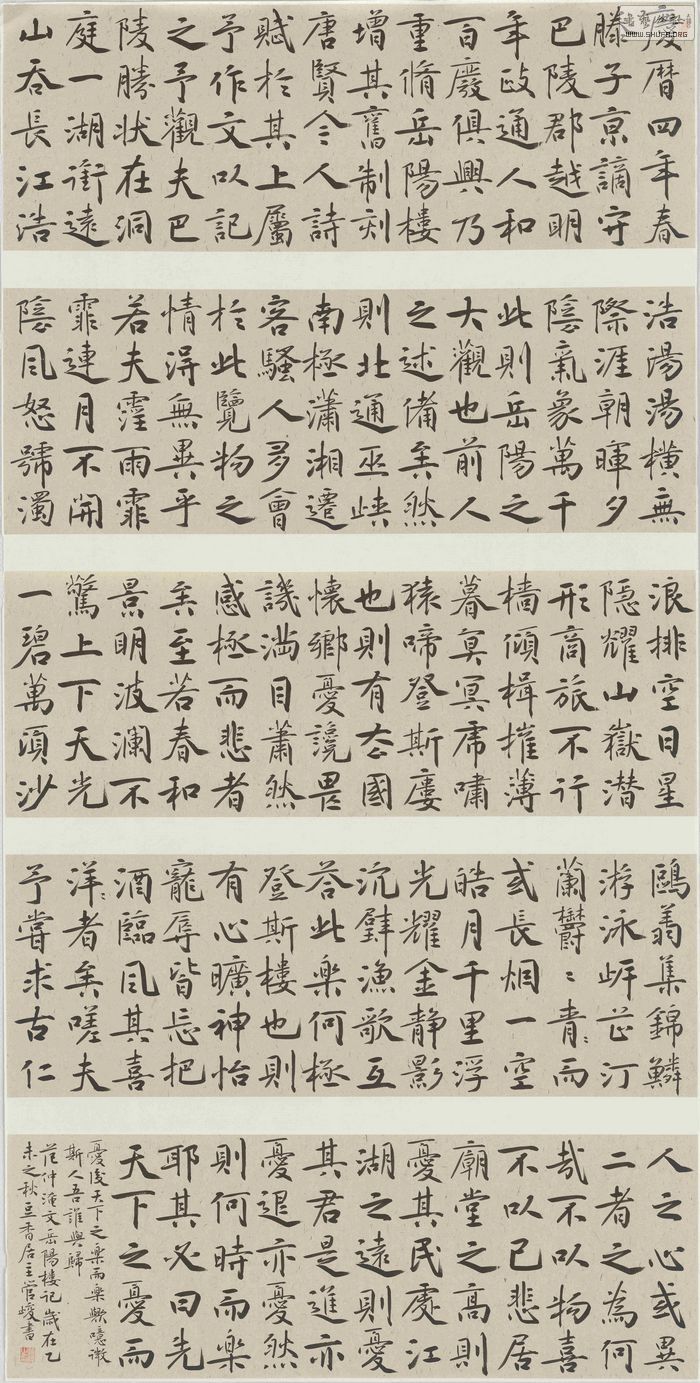 慶曆四年春
滕子京謫守
巴陵郡越明
年政通人和
百廢俱興乃
重脩岳陽樓
增其舊制刻
唐賢今人詩
賦於其上屬
予作文以記
之予觀夫巴
陵勝状在洞
庭一湖銜遠
山吞長江浩
浩湯湯橫無
際涯朝暉夕
陰氣象萬千
此則岳陽之
大觀也前人
之述備矣然
則北通巫峽
南極瀟湘遷
客騷人多會
於此覽物之
情淂無異乎
若夫霪雨霏
霏連月不開
陰風怒號濁
浪排空日星
隱耀山嶽潜
形商旅不行
檣傾楫摧薄
暮冥冥虎嘯
猿啼登斯樓
也則有去國
懷鄉憂讒畏
譏满目蕭然
感極而悲者
矣至若春和
景明波瀾不
驚上下天光
一碧萬頃沙
鷗翔集錦鱗
游泳岸芷汀
蘭欝〻青〻而
或長烟一空
皓月千里浮
光耀金静影
沉璧漁歌互
荅此樂何極
登斯樓也則
有心曠神怡
寵辱皆忘把
酒臨風其喜
洋〻者矣嗟夫
予嘗求古仁
人之心或異
二者之為何
哉不以物喜
不以己悲居
廟堂之高則
憂其民處江
湖之遠則憂
其君是進亦
憂退亦憂然
則何時而樂
耶其必曰先
天下之憂而
憂後天下之樂而樂歟噫微
斯人吾誰與歸
范仲淹文岳陽樓記歲在乙
未之秋豆香居主管峻書
WWW.SHUFA.ORG